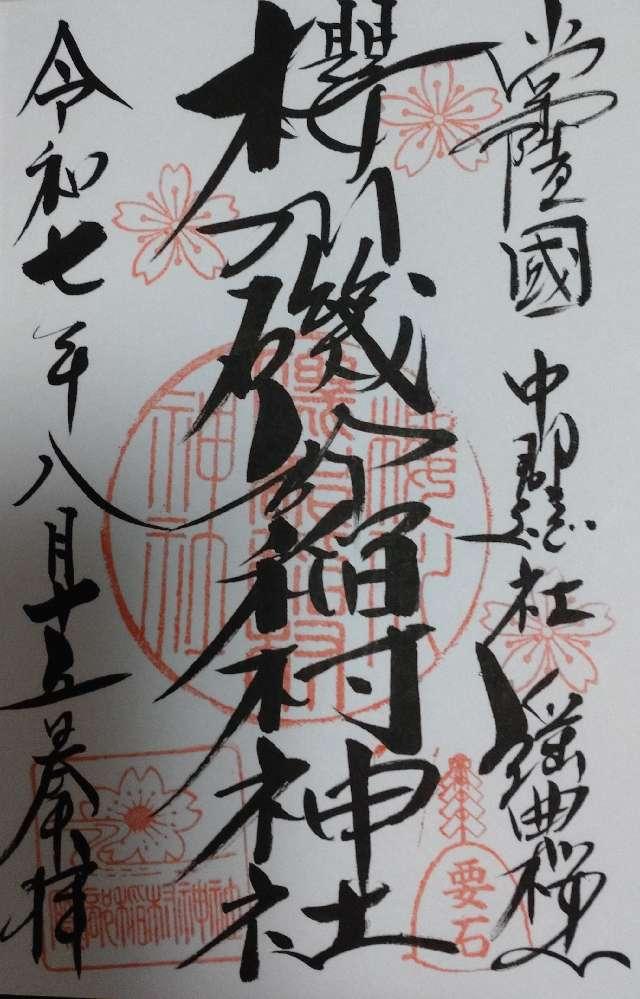 常陸國 中郡総社 謡曲桜川
櫻川磯部稲村神社
令和七年八月十五日奉拝
要石
櫻川磯部稲村神社
磯部稲村神社